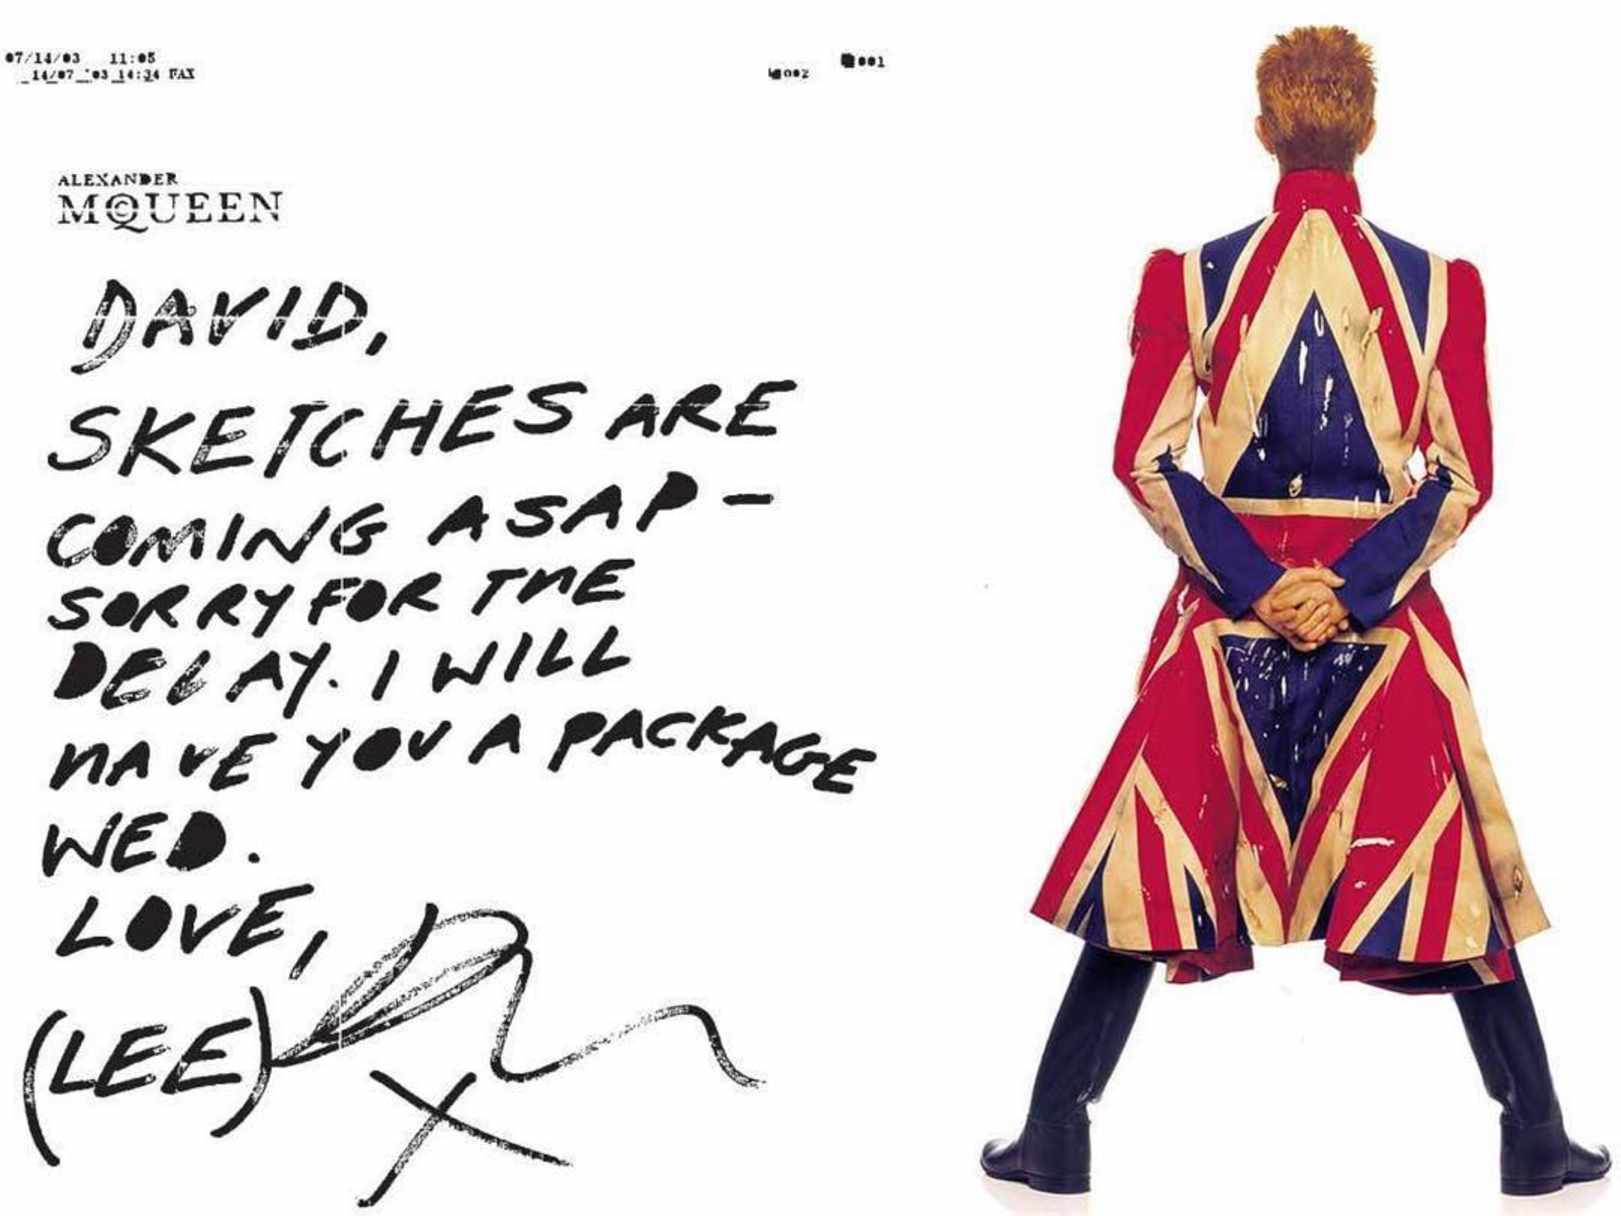 07/14/03 11:05
14/07 '03 14:34 FAX
002 001
ALEXANDER
MCQUEEN
DAVID,
SKETCHES ARE
COMING ASAP -
SORRY FOR THE
DELAY. I WILL
HAVE YOU A PACKAGE
WED.
LOVE,
(LEE)
X